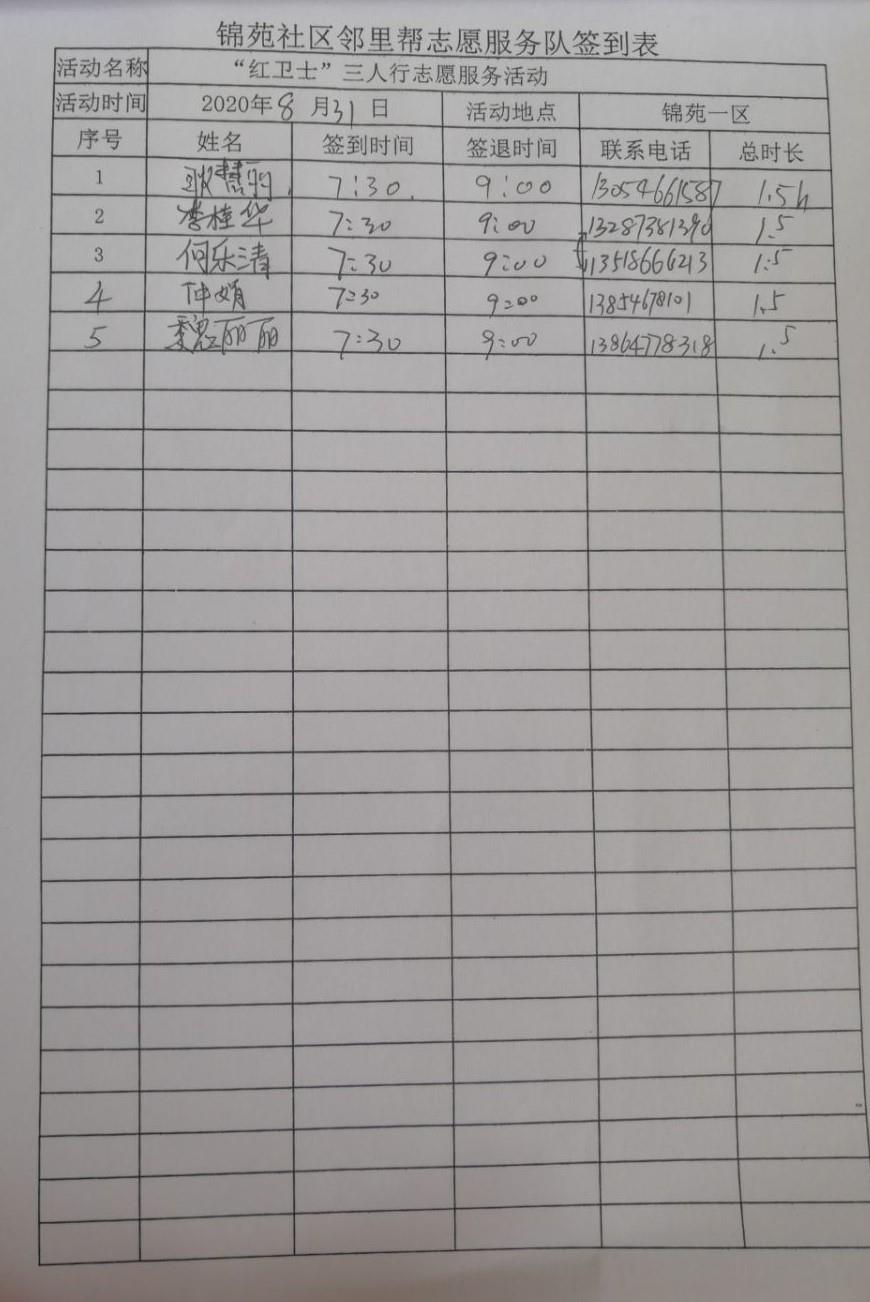 锦苑社区邻里帮志愿服务队签到表
活动名称 “红卫士”三人行志愿服务活动
活动时间 2020年8月31日 活动地点 锦苑一区
序号 姓名 签到时间 签退时间 联系电话 总时长
1 耿慧 7:30 9:00 13054661587 1.5h
2 李桂华 7:30 9:00 1.5
3 何乐清 7:30 9:00 13518666213 1.5
4 仲娟 7:30 9:00 13854678101 1.5
5 魏丽丽 7:30 9:00 13864778318 1.5